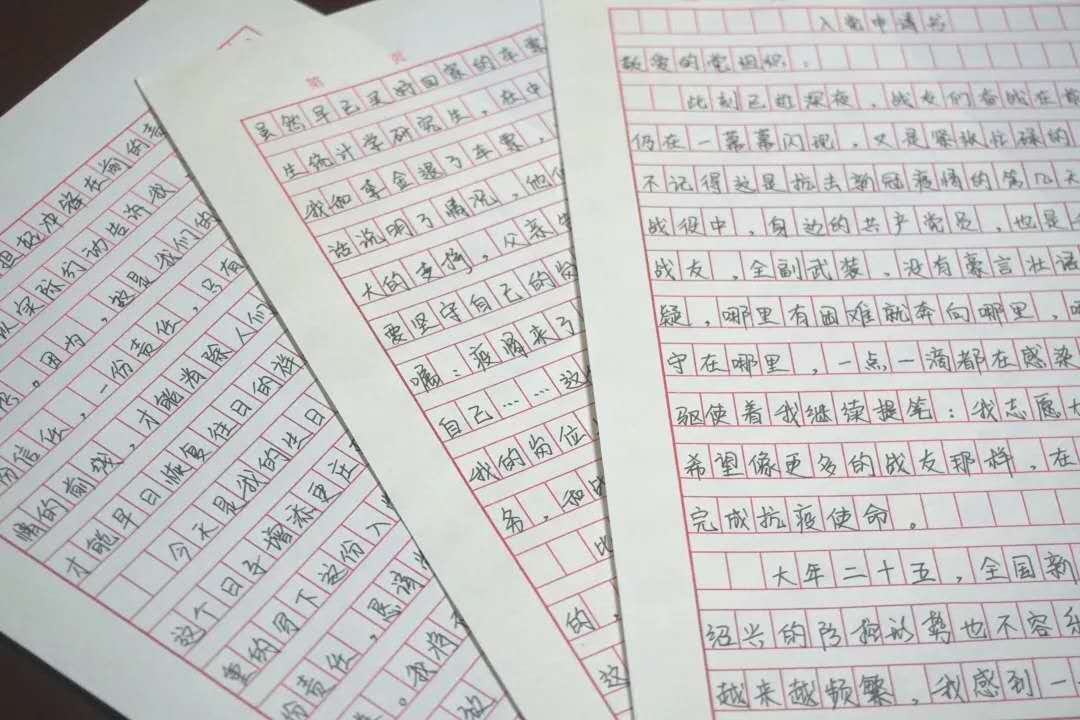 入党申请书
敬爱的党组织：
此刻已近深夜，战友们奋战在
仍在一幕幕闪现，又是紧张忙碌的
不记得这是抗击新冠疫情的第几天
战役中，身边的共产党员，也是
战友，全副武装，没有豪言壮语
疑，哪里有困难就奔向哪里，
守在哪里，一点一滴都在感染
驱使着我继续提笔：我志愿
希望像更多的战友那样，在
完成抗疫使命。
大年二十五，全国新
绍兴的防控形势也不容乐
越来越频繁，我感到一
第 页
虽然早已买好回家的车票
生统计学研究生，在中
我和李金退了车票，
话说明了情况，他们
大的支撑，父亲
要坚守自己的岗
嘱：疫情来了
自己……这
我的岗位
务，和战
比
的，
这
担起冲锋在前的责
以实际行动告诉我，
因为，这是我们的
信任，一份责任，只有
情的前线，才能为除人们
才能早日恢复往日的祥
今天是我的生日
这个日子增添更庄
重的写下这份入
份责任，愿该
。我将